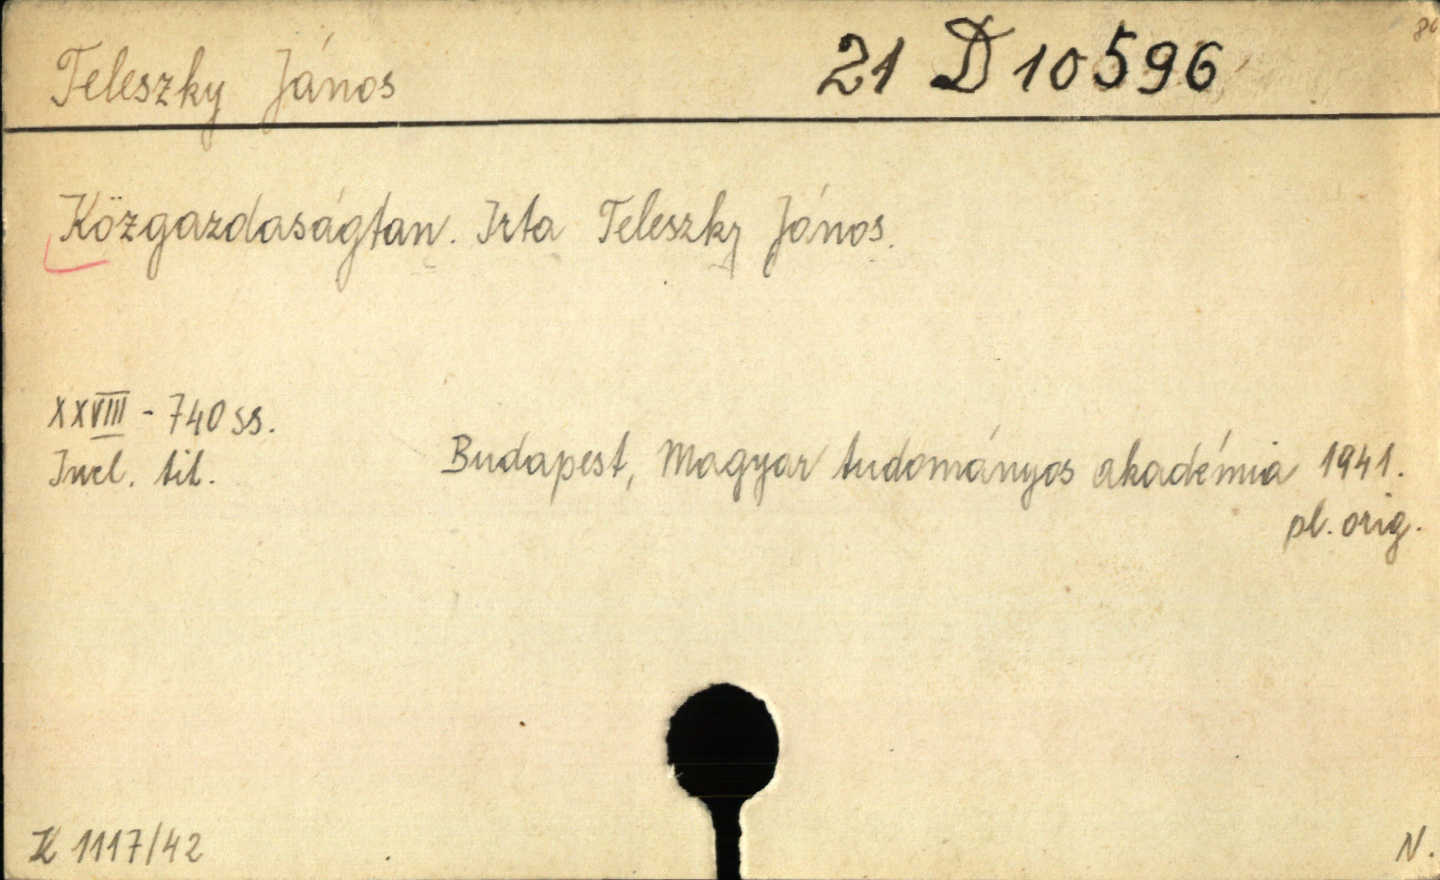 Teleszky János 21 D 10596
Közgazdaságtan. Irta Teleszky János.
XXVIII - 740 ss.
Incl. tit.
Budapest, Magyar tudományos akadémia 1941.
pl. orig.
K 1117/42
N.